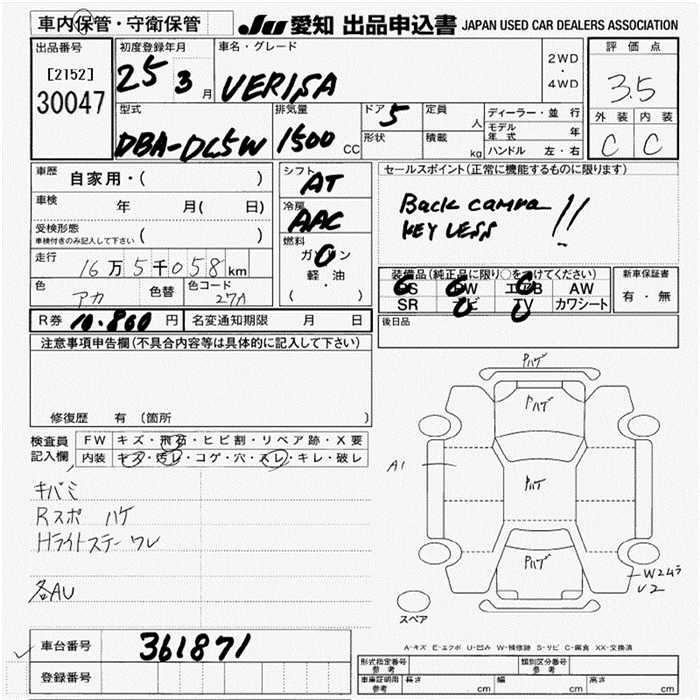 車内保管・守衛保管
JU 愛知 出品申込書 JAPAN USED CAR DEALERS ASSOCIATION
出品番号
[2152]
30047
初度登録年月
25 3 月
車名・グレード
VERISA
2WD
・
4WD
評価点
3.5
外装 内装
C C
型式
DBA-DC5W
排気量
1500 CC
ドア 5
形状
定員 人
積載 kg
ディーラー・並行
モデル年式 年
ハンドル 左・右
車歴 自家用・( )
車検 年 月( 日)
受検形態
車検付きのみ記入して下さい ( )
走行 16万5千058km
色 アカ
色替
色コード 27A
シフト AT
冷房 AAC
燃料
ガソリン
軽・油
( )
セールスポイント(正常に機能するものに限ります)
Back camra
KEY LESS !!
装備品(純正品に限り○をつけてください)
PS PW エアB AW
SR ナビ TV カワシート
新車保証書
有・無
R券 10.860 円
名変通知期限 月 日
後日品
注意事項申告欄(不具合内容等は具体的に記入して下さい)
修復歴 有 (箇所 )
検査員記入欄
FW キズ・飛石・ヒビ割・リペア跡・X要
内装 キズ・汚レ・コゲ・穴・スレ・キレ・破レ
キバミ
Rスポ ハゲ
Hライトステー ワレ
各AU
Pハゲ
Pハゲ
A1
Pハゲ
Pハゲ
W2ムラ
U2
スペア
A-キズ E-エクボ U-凹み W-補修跡 S-サビ C-腐食 XX-交換済
車台番号 361871
登録番号
形式指定番号 参考
類別区分番号 参考
車庫証明用 参考
長さ cm 幅 cm 高さ cm